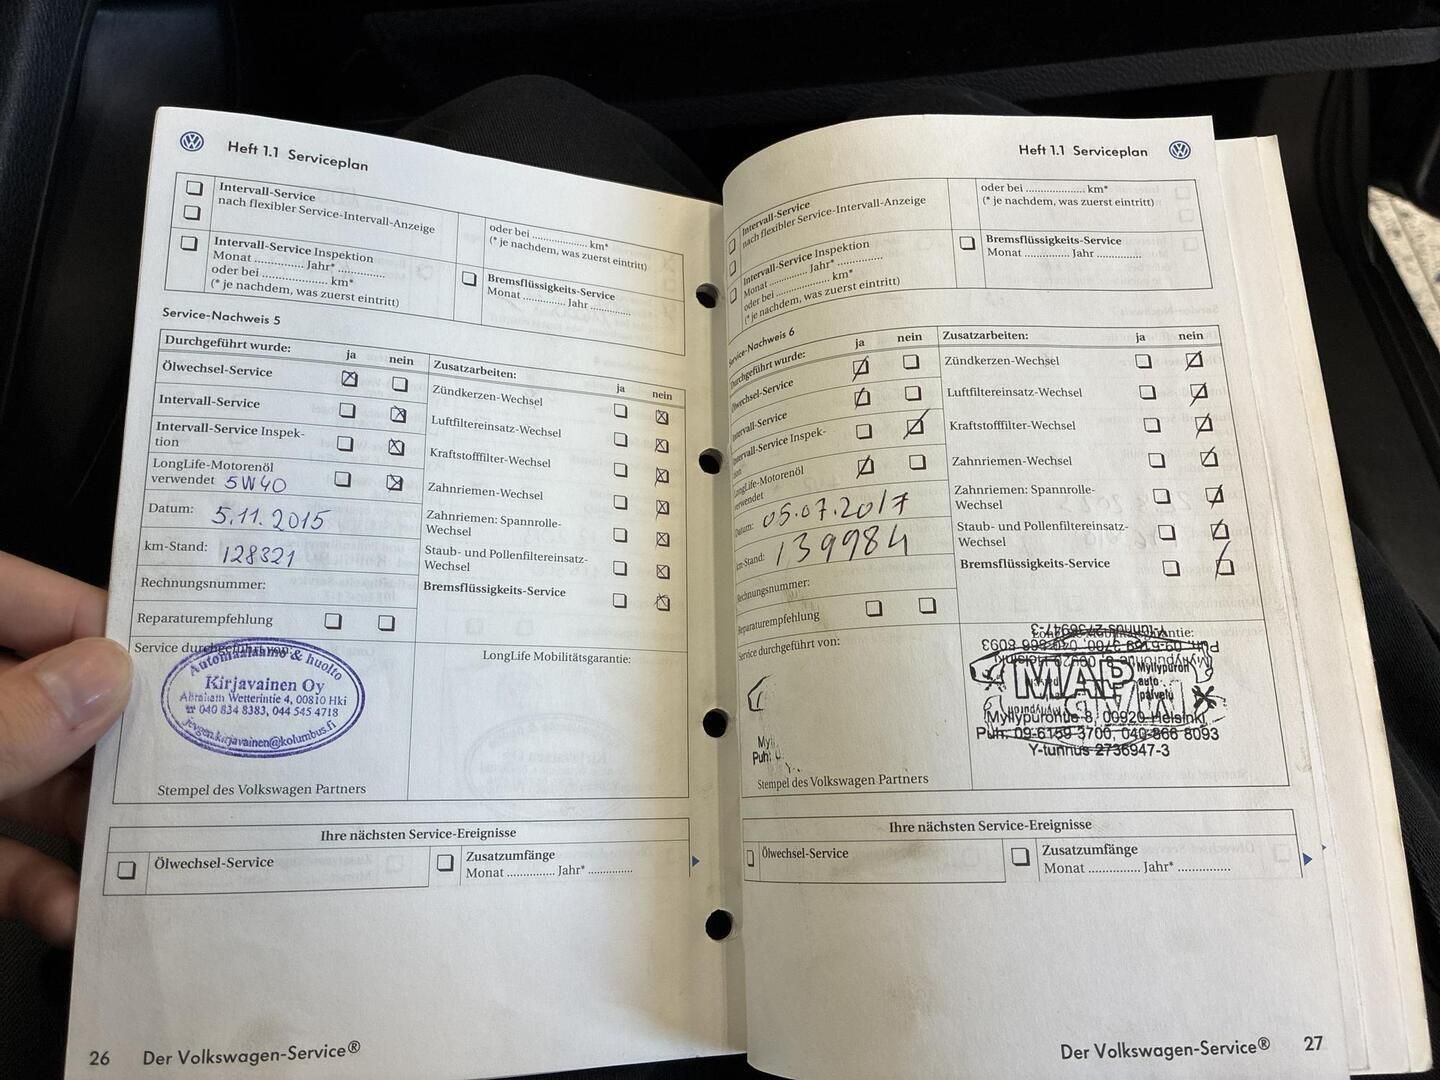 Heft 1.1 Serviceplan
Intervall-Service
nach flexibler Service-Intervall-Anzeige
oder bei .................... km*
(* je nachdem, was zuerst eintritt)
Intervall-Service Inspektion
Monat .............. Jahr* ..............
oder bei .................... km*
(* je nachdem, was zuerst eintritt)
Bremsflüssigkeits-Service
Monat ............. Jahr .............
Service-Nachweis 5
Durchgeführt wurde: ja nein
Ölwechsel-Service
Intervall-Service
Intervall-Service Inspek-
tion
LongLife-Motorenöl
verwendet 5W40
Datum: 5.11.2015
km-Stand: 128321
Rechnungsnummer:
Reparaturempfehlung
Zusatzarbeiten: ja nein
Zündkerzen-Wechsel
Luftfiltereinsatz-Wechsel
Kraftstofffilter-Wechsel
Zahnriemen-Wechsel
Zahnriemen: Spannrolle-
Wechsel
Staub- und Pollenfiltereinsatz-
Wechsel
Bremsflüssigkeits-Service
Service durchgeführt von:
Automaalaamo & huolto
Kirjavainen Oy
Abraham Wetterintie 4, 00810 Hki
☎ 040 834 8383, 044 545 4718
jevgen.kirjavainen@kolumbus.fi
Stempel des Volkswagen Partners
LongLife Mobilitätsgarantie:
Ihre nächsten Service-Ereignisse
Ölwechsel-Service
Zusatzumfänge
Monat .............. Jahr* .............
26 Der Volkswagen-Service®
Heft 1.1 Serviceplan
Intervall-Service
nach flexibler Service-Intervall-Anzeige
oder bei .................... km*
(* je nachdem, was zuerst eintritt)
Intervall-Service Inspektion
Monat .............. Jahr* ..............
oder bei .................... km*
(* je nachdem, was zuerst eintritt)
Bremsflüssigkeits-Service
Monat .............. Jahr .............
Service-Nachweis 6
Durchgeführt wurde: ja nein
Ölwechsel-Service
Intervall-Service
Intervall-Service Inspek-
LongLife-Motorenöl
verwendet
Datum: 05.07.2017
km-Stand: 139984
Rechnungsnummer:
Reparaturempfehlung
Zusatzarbeiten: ja nein
Zündkerzen-Wechsel
Luftfiltereinsatz-Wechsel
Kraftstofffilter-Wechsel
Zahnriemen-Wechsel
Zahnriemen: Spannrolle-
Wechsel
Staub- und Pollenfiltereinsatz-
Wechsel
Bremsflüssigkeits-Service
Service durchgeführt von:
Puh:
Stempel des Volkswagen Partners
MAP Myllypuron
auto
palvelu
Myllypurontie 8, 00920 Helsinki
Puh: 09-6159 3700, 040-866 8093
Y-tunnus 2736947-3
Ihre nächsten Service-Ereignisse
Ölwechsel-Service
Zusatzumfänge
Monat .............. Jahr* ..............
Der Volkswagen-Service® 27